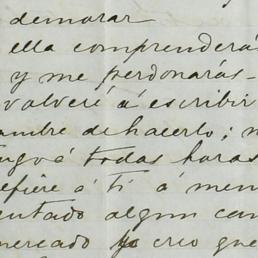 demorar
ella comprenderá
y me perdonarás.
volveré á escribir
ambre de hacerlo; n
á todas horas
efiere á ti á men
entado algun cam
mercado yo creo que